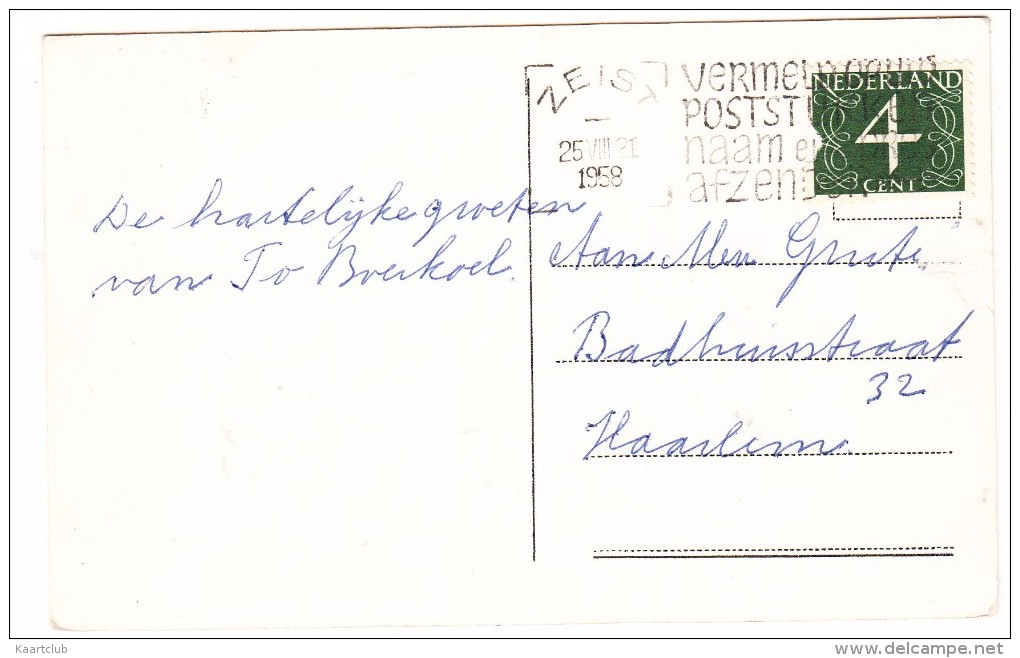 ZEIST
25 VIII 21
1958
VERMELD
POSTSTUKKEN
naam en
afzender
NEDERLAND
4
CENT
De hartelijke groeten
van To
Aan Mevr Grute
Badhuisstraat
32
Haarlem
Kaartclub
delcampe.net